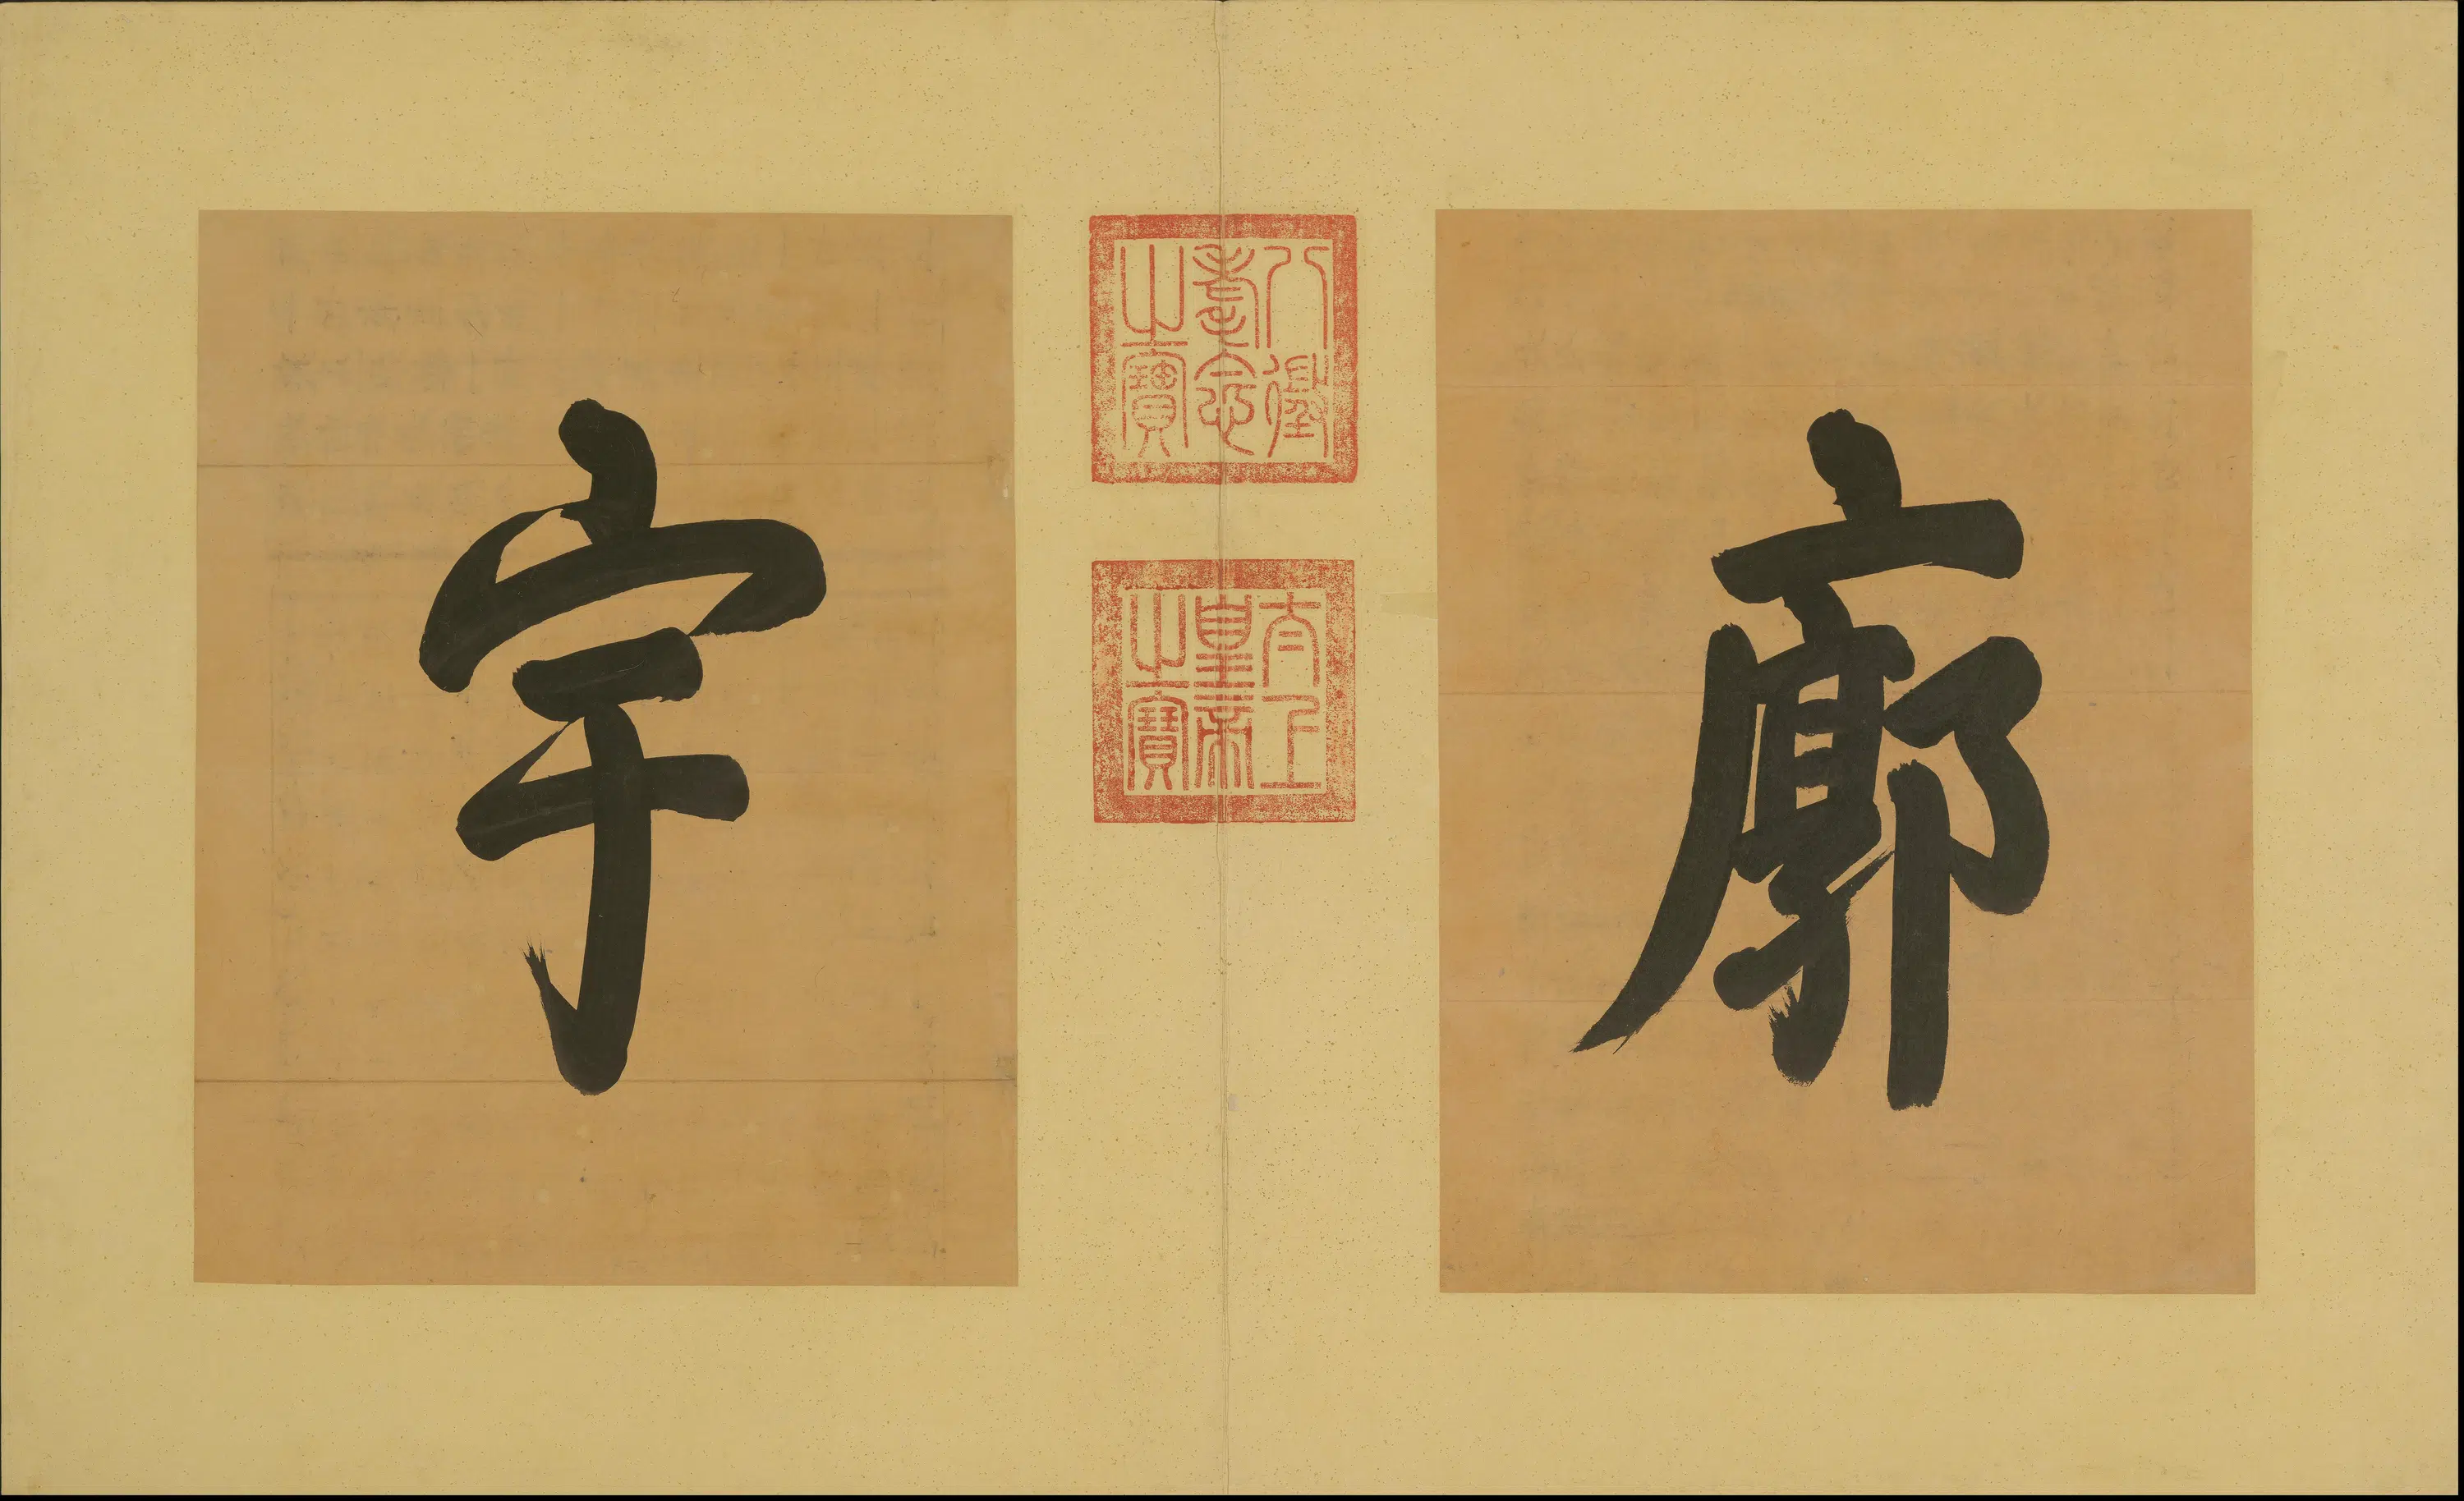 廓
八徵
耄念
之寶
太上
皇帝
之寶
宇